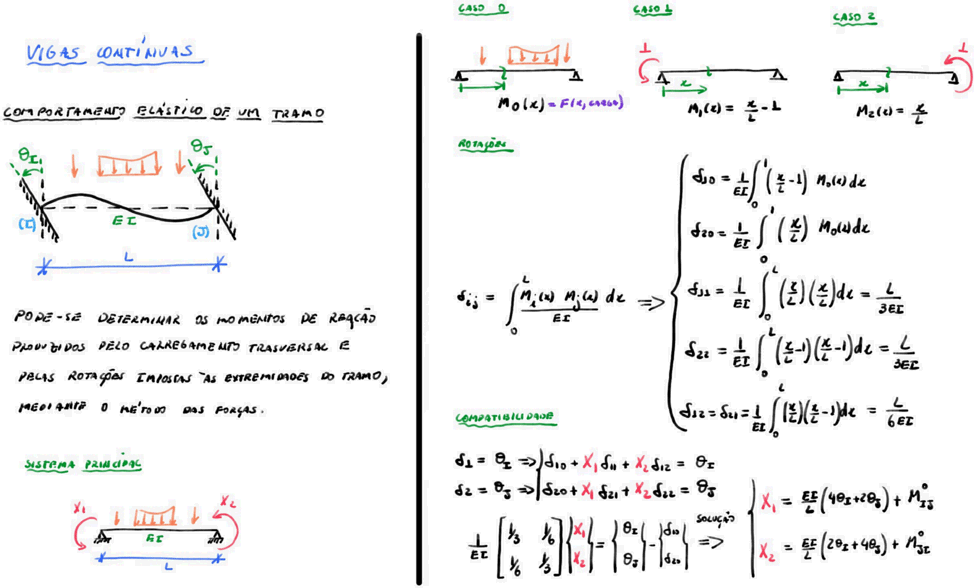 VIGAS CONTÍNUAS
COMPORTAMENTO ELÁSTICO DE UM TRAMO
θ_I
θ_J
EI
(I)
(J)
L
PODE-SE DETERMINAR OS MOMENTOS DE REAÇÃO
PRODUZIDOS PELO CARREGAMENTO TRASVERSAL E
PELAS ROTAÇÕES IMPOSTAS ÀS EXTREMIDADES DO TRAMO,
MEDIANTE O MÉTODO DAS FORÇAS.
SISTEMA PRINCIPAL
X_1
X_2
EI
L
CASO 0
CASO 1
CASO 2
1
1
x
x
x
M_0(x) = F(x, CARGA)
M_1(x) = x/L - 1
M_2(x) = x/L
ROTAÇÕES
δ_10 = 1/EI ∫_0^1 (x/L - 1) M_0(x) dx
δ_20 = 1/EI ∫_0^1 (x/L) M_0(x) dx
δ_ij = ∫_0^L M_i(x) M_j(x) dx / EI ⇒
δ_11 = 1/EI ∫_0^L (x/L)(x/L) dx = L/3EI
δ_22 = 1/EI ∫_0^L (x/L - 1)(x/L - 1) dx = L/3EI
δ_12 = δ_21 = 1/EI ∫_0^L (x/L)(x/L - 1) dx = L/6EI
COMPATIBILIDADE
δ_1 = θ_I ⇒ δ_10 + X_1 δ_11 + X_2 δ_12 = θ_I
δ_2 = θ_J ⇒ δ_20 + X_1 δ_21 + X_2 δ_22 = θ_J
1/EI [1/3 1/6; 1/6 1/3] {X_1; X_2} = {θ_I; θ_J} - {δ_10; δ_20}
SOLUÇÃO ⇒
X_1 = EI/L (4θ_I + 2θ_J) + M°_IJ
X_2 = EI/L (2θ_I + 4θ_J) + M°_JI